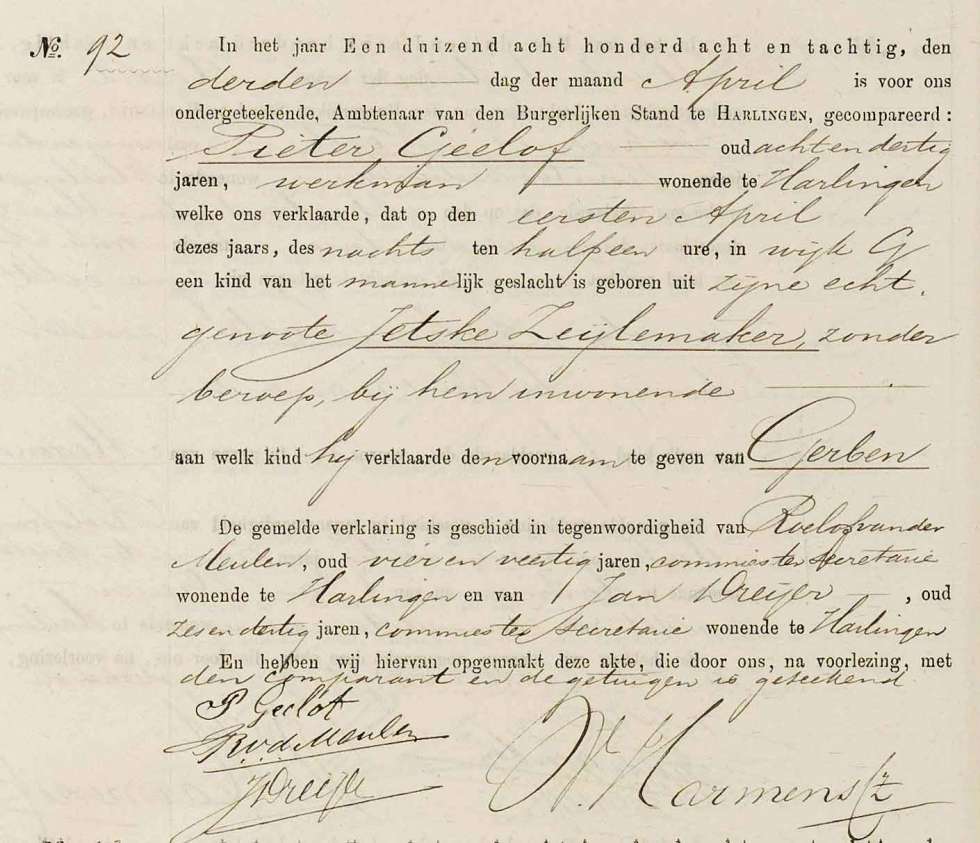 No. 92
In het jaar Een duizend acht honderd acht en tachtig, den
derden dag der maand April is voor ons
ondergeteekende, Ambtenaar van den Burgerlijken Stand te HARLINGEN, gecompareerd:
Pieter Geelof oud acht en dertig
jaren, werkman wonende te Harlingen
welke ons verklaarde, dat op den eersten April
dezes jaars, des nachts ten half een ure, in wijk G
een kind van het mannelijk geslacht is geboren uit zijne echt,
genoote Jetske Zeijlemaker, zonder
beroep, bij hem inwonende
aan welk kind hij verklaarde den voornaam te geven van Gerben
De gemelde verklaring is geschied in tegenwoordigheid van Roelof van der
Meulen, oud vier en veertig jaren, commies ter secretarie
wonende te Harlingen en van Jan Dreijer, oud
zes en dertig jaren, commies ter secretarie wonende te Harlingen
En hebben wij hiervan opgemaakt deze akte, die door ons, na voorlezing, met
den comparant en de getuigen is geteekend
P Geelof
R.v.d. Meulen
J Dreijer
Harmens